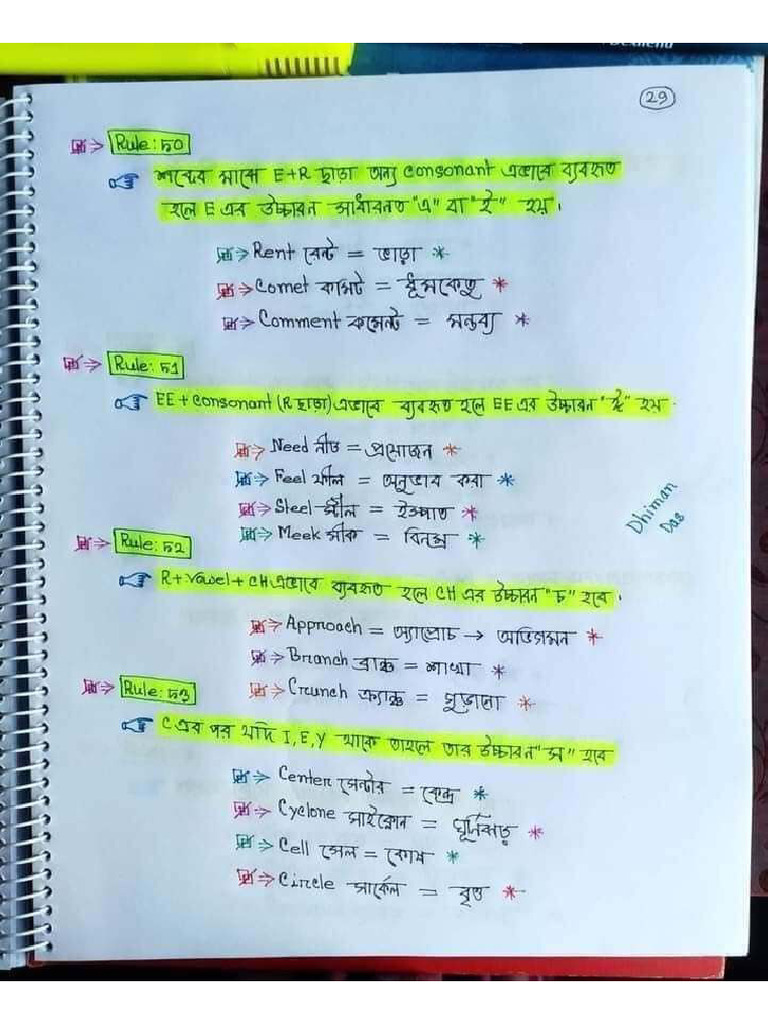 29
Rule: 50
শব্দের মাঝে E+R ছাড়া অন্য consonant এভাবে ব্যবহৃত
হলে E এর উচ্চারন সাধারনত "এ" বা "ই" হয়।
Rent রেন্ট = ভাড়া *
Comet কমেট = ধূমকেতু *
Comment কমেন্ট = মন্তব্য *
Rule: 51
EE + consonant (R ছাড়া) এভাবে ব্যবহৃত হলে EE এর উচ্চারন "ই" হয়.
Need নীড = প্রয়োজন *
Feel ফীল = অনুভব করা *
Steel স্টীল = ইস্পাত *
Meek মীক = বিনম্র *
Dhiman
Das
Rule: 52
R + vowel + CH এভাবে ব্যবহৃত হলে CH এর উচ্চারন "চ" হবে.
Approach = অ্যাপ্রোচ → অভিগমন *
Branch ব্রাঞ্চ = শাখা *
Rule: 53
Crunch ক্র্যাঞ্চ = গুড়ানো *
C এর পর যদি I, E, Y থাকে তাহলে তার উচ্চারন "স" হবে
Center সেন্টার = কেন্দ্র *
Cyclone সাইক্লোন = ঘূর্নিঝড় *
Cell সেল = কোষ *
Circle সার্কেল = বৃত্ত *